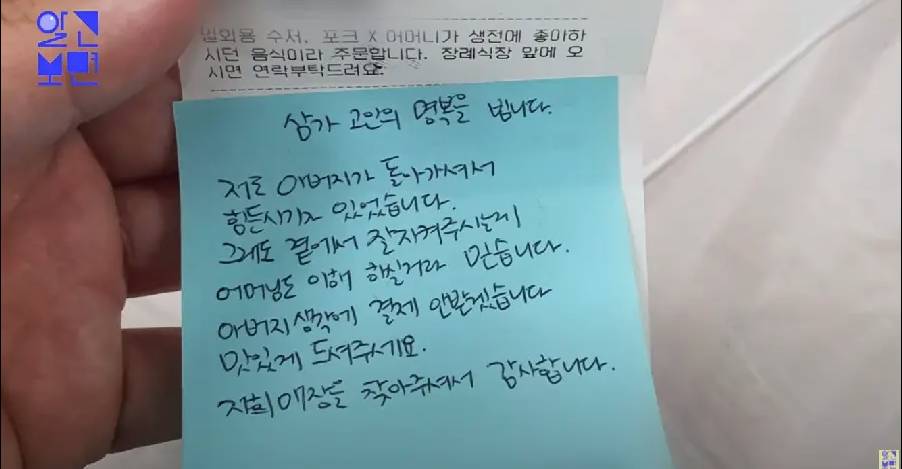 알고
보면
일회용 수저, 포크 X 어머니가 생전에 좋아하
시던 음식이라 주문합니다. 장례식장 앞에 오
시면 연락부탁드려요
삼가 고인의 명복을 빕니다.
저도 아버지가 돌아가셔서
힘든시기가 있었습니다.
그래도 곁에서 잘 지켜주시는게
어머님도 이해 하실거라 믿습니다.
아버지 생각에 결제 안받겠습니다
맛있게 드셔주세요.
저희 매장을 찾아주셔서 감사합니다.